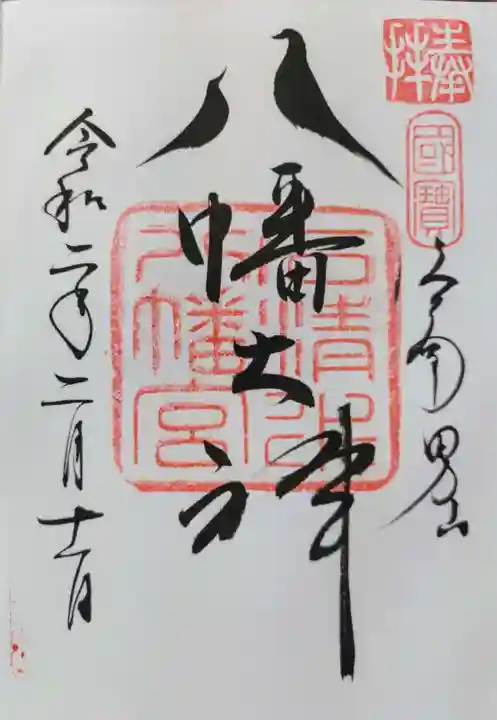 奉拝
國寶
京都 男山
八幡大神
石清水八幡宮
令和二年二月十一日